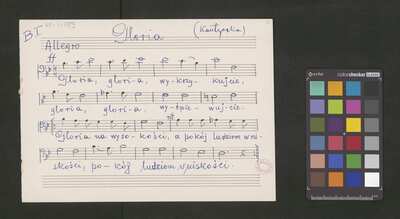 BT
Gloria
(Kantyczka)
Allegro
ff
Gloria, glori-a, wy-krzy-kujcie,
gloria, glori-a, wy-śpie-wuj-cie.
Gloria na wyso-kości, a pokój ludziom w ni
skości, po-kój ludziom w niskości.
colorchecker